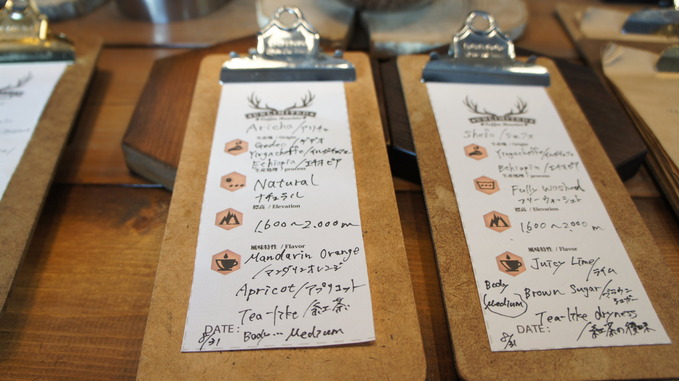 UNLIMITED
Coffee Roasters
Aricha/アリチャ
生産地 / Origin
Gedeo/ゲデオ
Yirgacheffe/イルガチェフェ
Ethiopia/エチオピア
生産処理 / process
Natural
ナチュラル
標高 / Elevation
1.600〜2.000m
風味特性 / Flavor
Mandarin Orange
/マンダリンオレンジ
Apricot/アプリコット
Tea-like/紅茶
DATE:
8/31
Body... Medium
UNLIMITED
Coffee Roasters
生産地 / Origin
Yirgacheffe/イルガチェフェ
Ethiopia/エチオピア
生産処理 / process
Fully Washed
フリーウォッシュト
標高 / Elevation
1600〜2.000m
風味特性 / Flavor
Juicy Lime/
ライム
Body
Medium
Brown Sugar/ブラウン
シュガー
Tea-like dryness
DATE:
/紅茶の後味
8/31